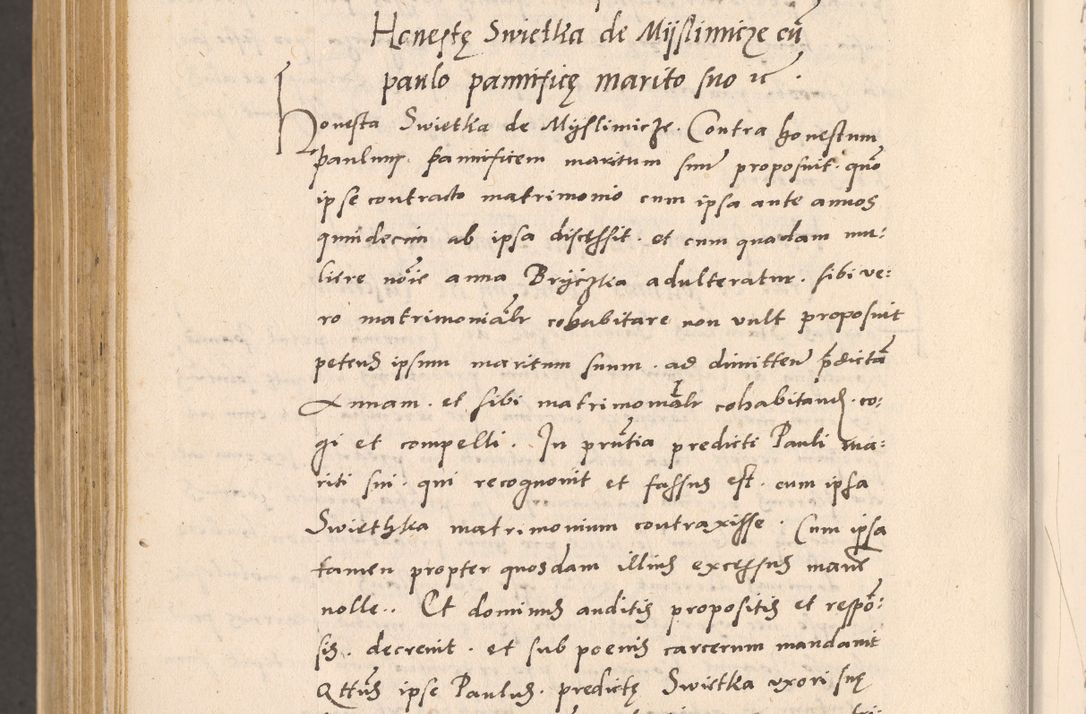 Honestę Swietka de Mÿslimicze cū
paulo pannificę marito suo ıc .
Honesta Swietka de Mÿslimicze . Contra honestum
paulum . pannificem maritum suū proposuit . quō
ipse contracto matrimonio cum ipsa ante annos
quindecim ab ipsa discessit . et cum quadam mu:
liere nōīe anna Brÿczka adulteratur . sibi ve:
ro matrimonīalr cohabitare non vult proposuit
petens ipsum maritum suum . ad dimitten̄ p̄dictā
Annam . et sibi matrimonīalr cohabitand . co:
gi et compelli . In prn̄tia predicti Pauli ma:
riti sui . qui recognovit et fassus est . cum ipsa
Swiethka matrimonium contraxisse . Cum ipsa
tamen propter quosdam illius excessus manē
nolle .. Et dominus auditis propositis et respō:
sis . decrevit . et sub poenis carcerum mandavit
Qttūs ipse Paulus . predictę Swietka uxori suę